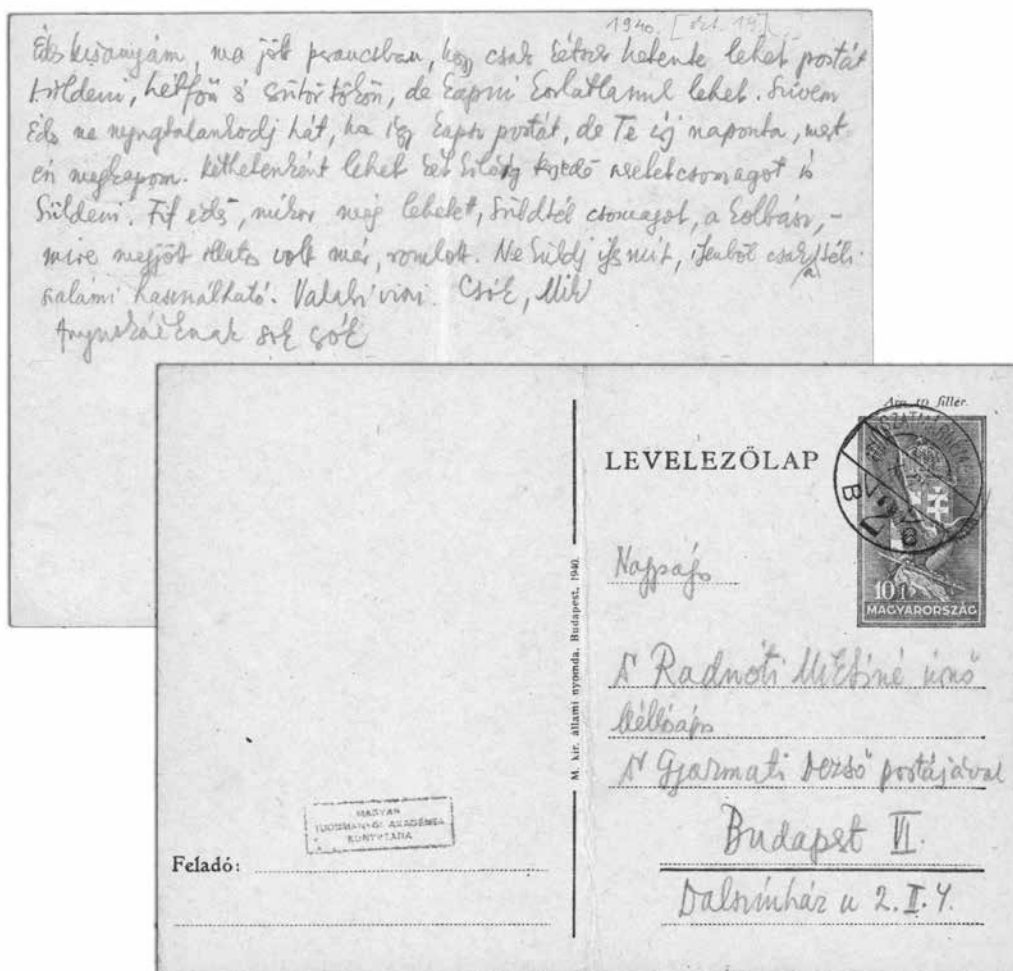 1940. [okt. 19]
Édes kisanyám, ma jött parancsban, hogy csak kétszer hetente lehet postát
küldeni, hétfőn s csütörtökön, de kapni korlátlanul lehet. Szívem
Édes ne nyugtalankodj hát, ha így kapsz postát, de Te írj naponta, mert
én megkapom. Kéthetenként lehet két kilóig terjedő szeretetcsomagot is
küldeni. Fif édes, mikor még lehetett, küldtél csomagot, a kolbász, -
mire megjött illatos volt már, romlott. Ne küldj ilyesmit, ilyenből csak a téli-
szalámi használható. Csók, Mik
Anyuskáéknak sok csók
Ára 10 fillér.
LEVELEZŐLAP
B
10 f
MAGYARORSZÁG
Nagyságos
Dr Radnóti Miklósné úrnő
Méltóságos
Dr Gyarmati Dezső postájával
Budapest VI.
Dalszínház u 2. II. 4.
M. kir. állami nyomda, Budapest, 1940.
MAGYAR
TUDOMÁNYOS AKADÉMIA
KÖNYVTÁRA
Feladó: